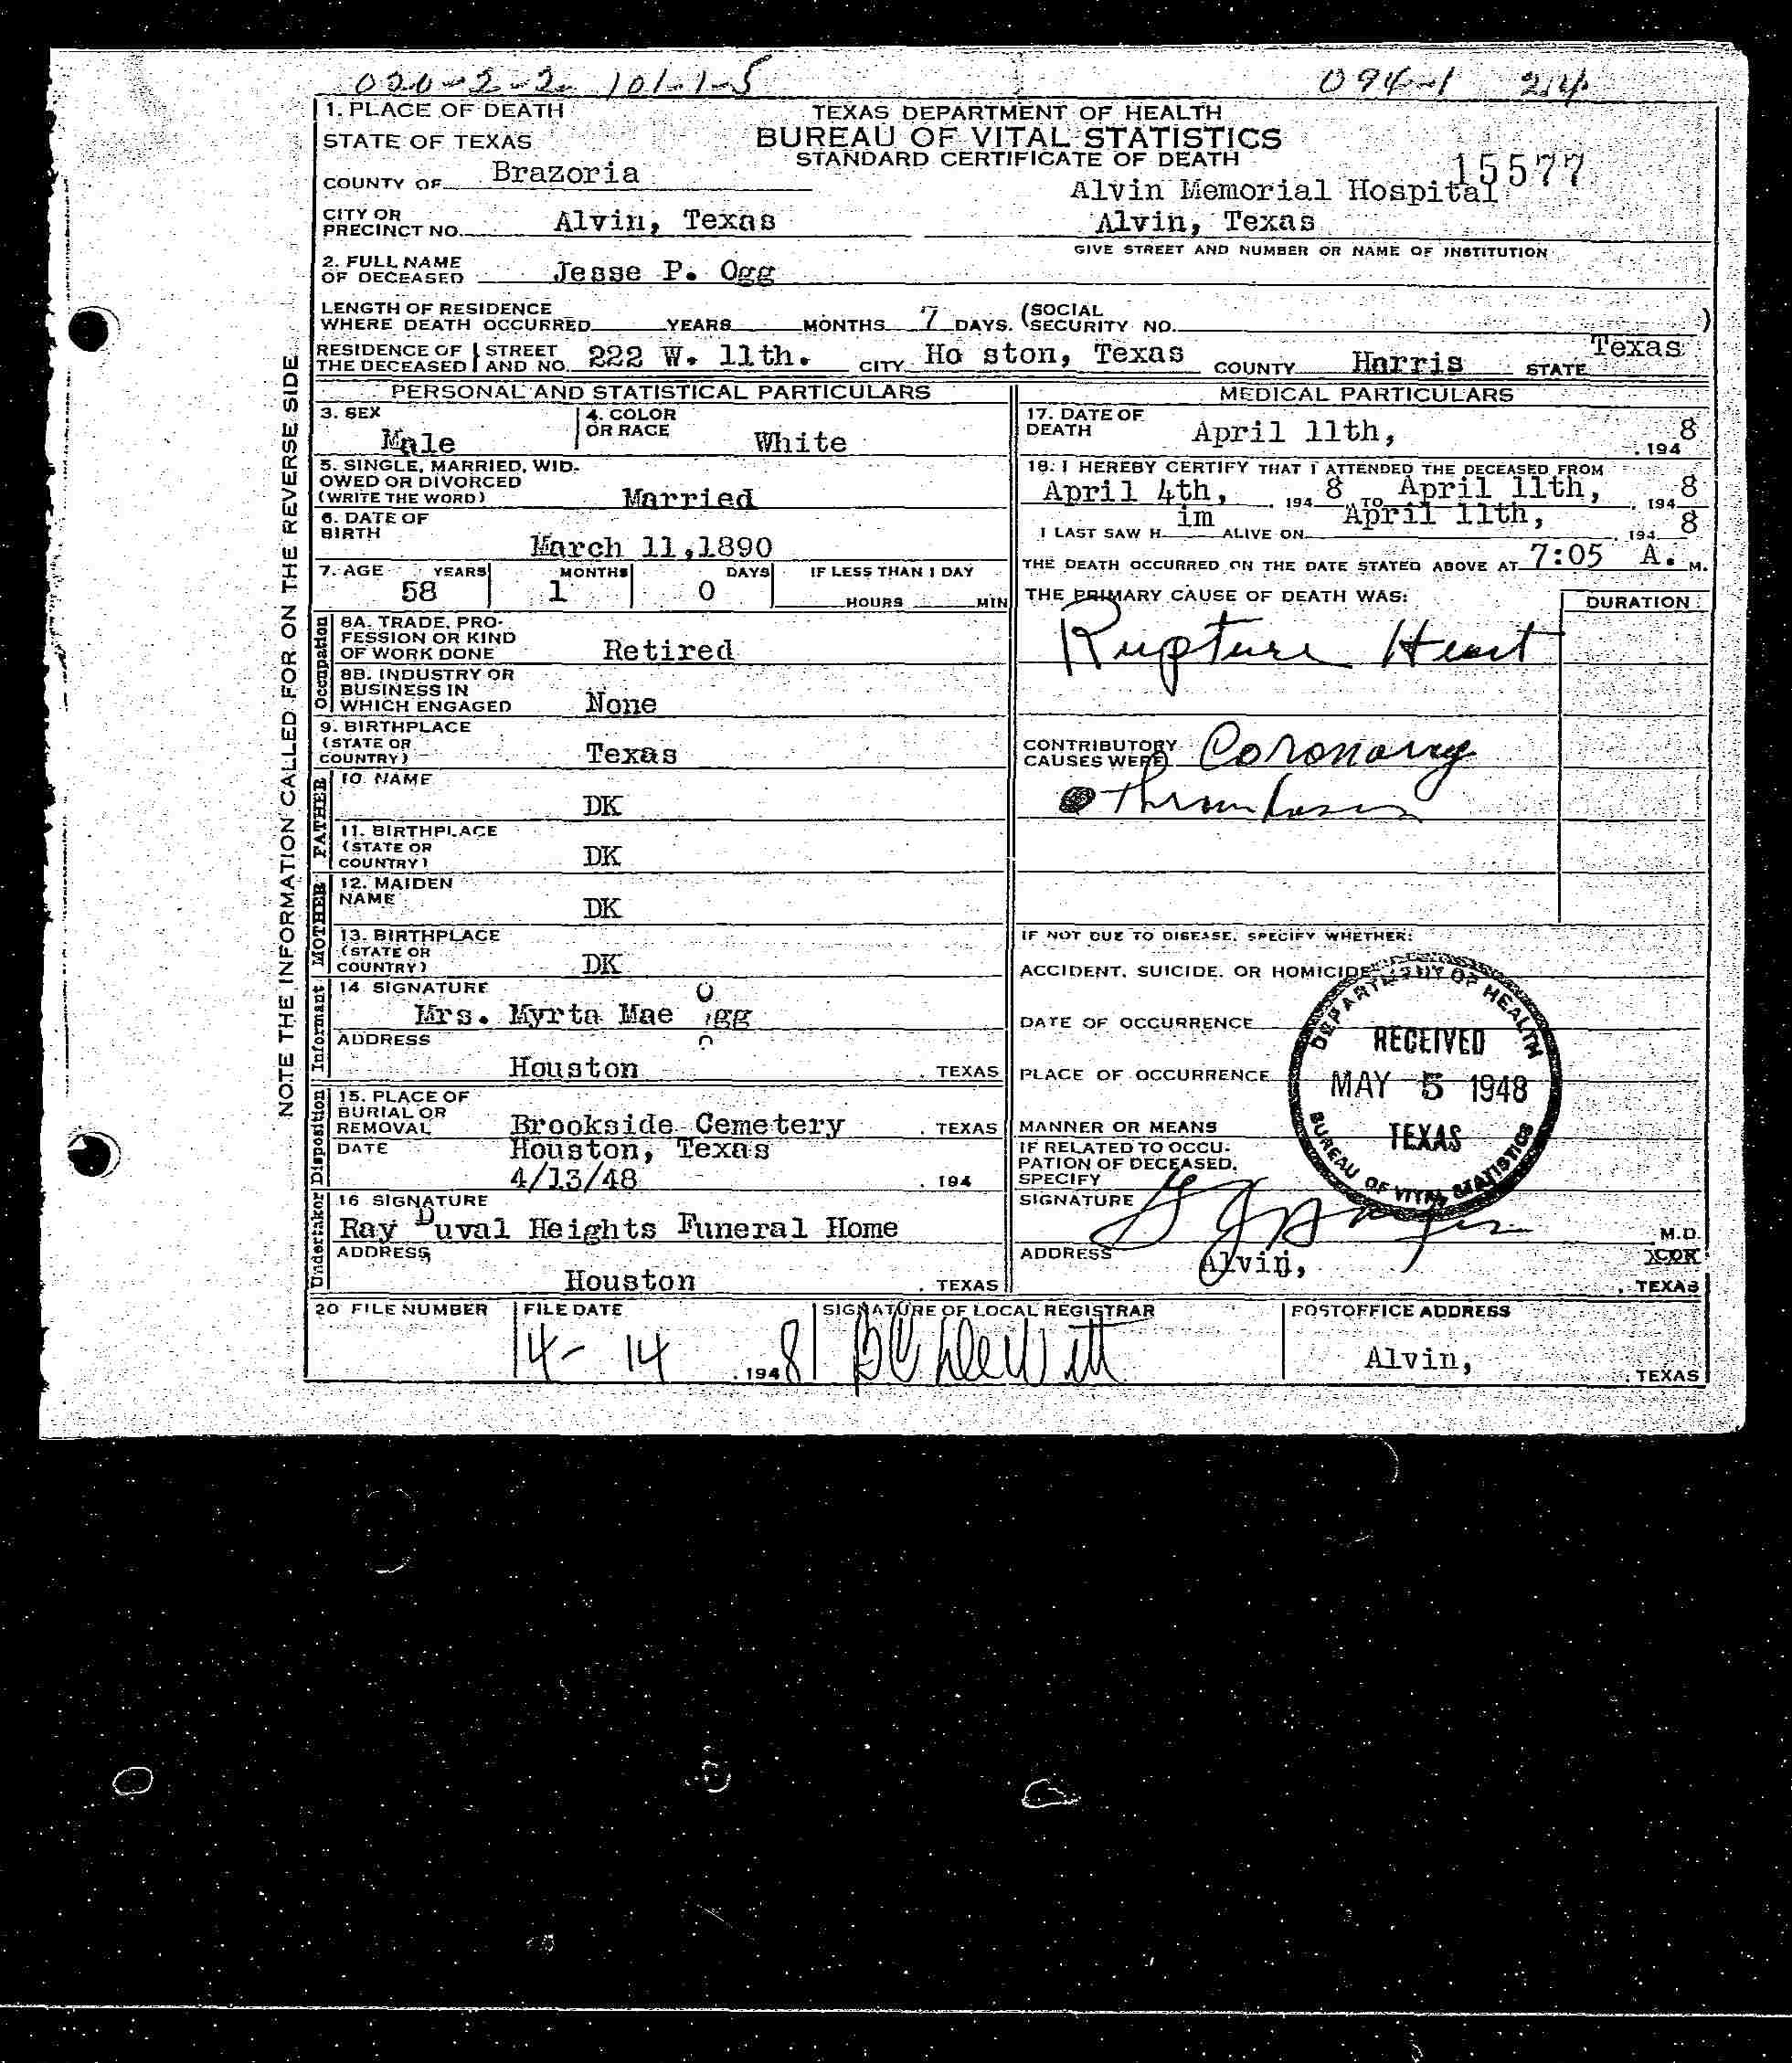 020-2-2 101-1-5 094-1 214
1. PLACE OF DEATH
STATE OF TEXAS
COUNTY OF Brazoria
CITY OR PRECINCT NO. Alvin, Texas
TEXAS DEPARTMENT OF HEALTH
BUREAU OF VITAL STATISTICS
STANDARD CERTIFICATE OF DEATH
15577
Alvin Memorial Hospital
Alvin, Texas
GIVE STREET AND NUMBER OR NAME OF INSTITUTION
2. FULL NAME OF DECEASED Jesse P. Ogg
LENGTH OF RESIDENCE WHERE DEATH OCCURRED YEARS MONTHS 7 DAYS. (SOCIAL SECURITY NO. )
RESIDENCE OF THE DECEASED STREET AND NO. 222 W. 11th. CITY Ho ston, Texas COUNTY Harris STATE Texas
NOTE THE INFORMATION CALLED FOR ON THE REVERSE SIDE
PERSONAL AND STATISTICAL PARTICULARS
3. SEX Male
4. COLOR OR RACE White
5. SINGLE, MARRIED, WIDOWED OR DIVORCED (WRITE THE WORD) Married
6. DATE OF BIRTH March 11,1890
7. AGE YEARS 58 MONTHS 1 DAYS 0 IF LESS THAN 1 DAY HOURS MIN
Occupation
8A. TRADE, PROFESSION OR KIND OF WORK DONE Retired
8B. INDUSTRY OR BUSINESS IN WHICH ENGAGED None
9. BIRTHPLACE (STATE OR COUNTRY) Texas
FATHER
10. NAME DK
11. BIRTHPLACE (STATE OR COUNTRY) DK
MOTHER
12. MAIDEN NAME DK
13. BIRTHPLACE (STATE OR COUNTRY) DK
Informant
14. SIGNATURE Mrs. Myrta Mae Ogg
ADDRESS Houston, TEXAS
Disposition
15. PLACE OF BURIAL OR REMOVAL Brookside Cemetery, TEXAS
Houston, Texas
DATE 4/13/48, 194
Undertaker
16 SIGNATURE
Ray Duval Heights Funeral Home
ADDRESS Houston, TEXAS
MEDICAL PARTICULARS
17. DATE OF DEATH April 11th, , 1948
18. I HEREBY CERTIFY THAT I ATTENDED THE DECEASED FROM
April 4th, , 1948 TO April 11th, , 1948
I LAST SAW Him ALIVE ON April 11th, , 1948
THE DEATH OCCURRED ON THE DATE STATED ABOVE AT 7:05 A. M.
THE PRIMARY CAUSE OF DEATH WAS: DURATION
Rupture Heart
CONTRIBUTORY CAUSES WERE Coronary
Thrombosis
IF NOT DUE TO DISEASE, SPECIFY WHETHER:
ACCIDENT, SUICIDE, OR HOMICIDE
DATE OF OCCURRENCE
PLACE OF OCCURRENCE
MANNER OR MEANS
IF RELATED TO OCCUPATION OF DECEASED, SPECIFY
DEPARTMENT OF HEALTH
RECEIVED
MAY 5 1948
TEXAS
BUREAU OF VITAL STATISTICS
SIGNATURE M.D.
ADDRESS Alvin, , TEXAS
20 FILE NUMBER
FILE DATE 4-14, 1948
SIGNATURE OF LOCAL REGISTRAR BC DeWitt
POSTOFFICE ADDRESS Alvin, , TEXAS